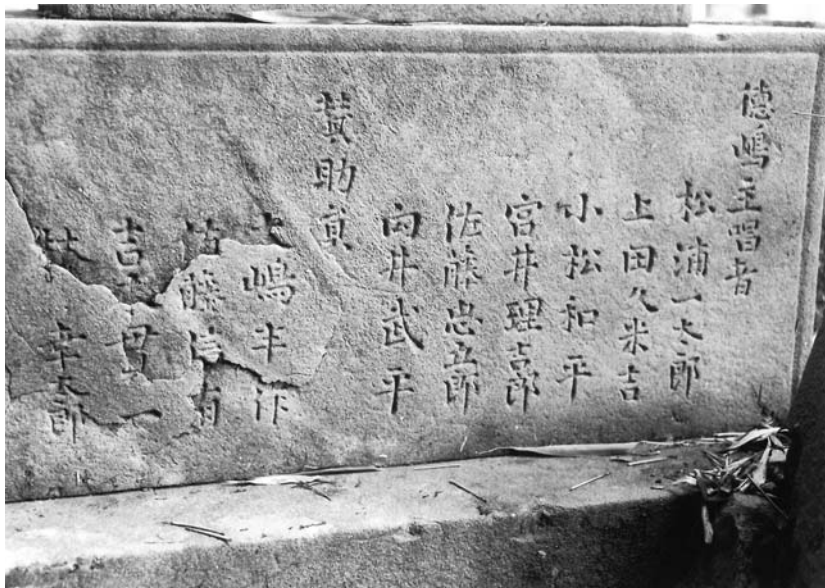 徳嶋主唱者
松浦一太郎
上田久米吉
小松和平
宮井理喜郎
佐藤忠五郎
向井武平
賛助員
大嶋半作
佐藤 有
吉 一
太郎